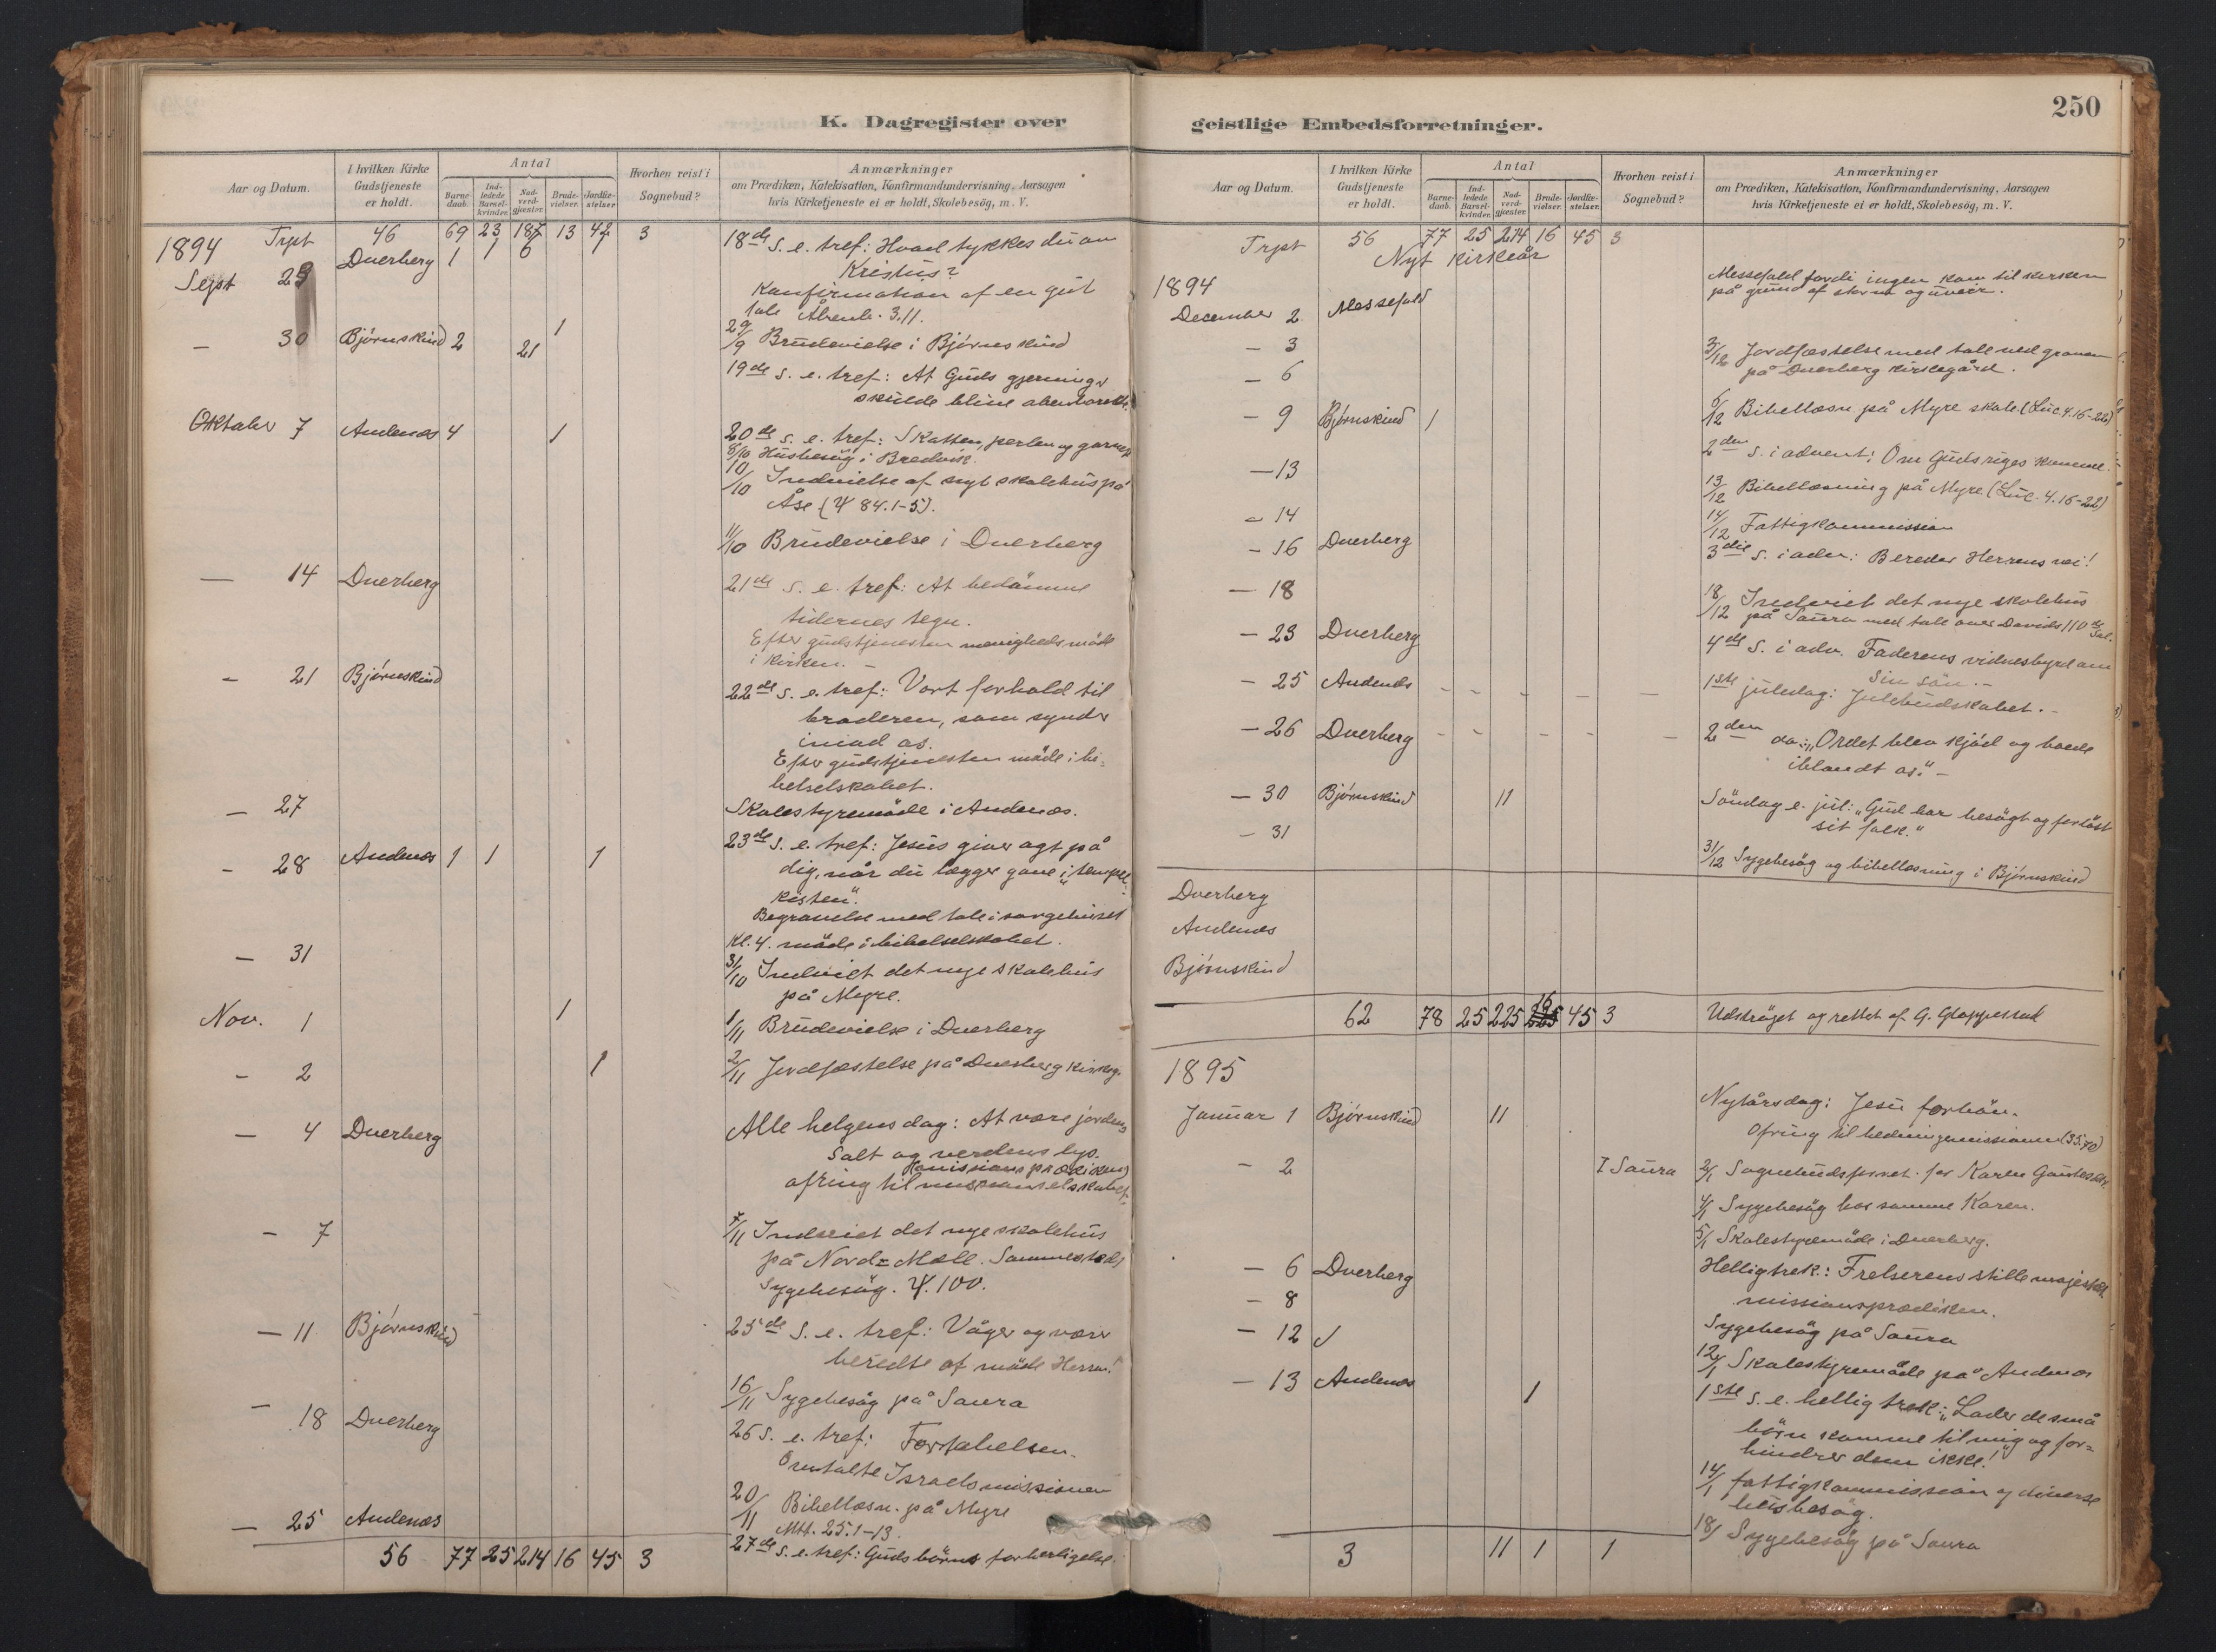 K. Dagregister over
Aar og Datum.
I hvilken Kirke Gudstjeneste er holdt.
Antal
Barnedaab.
Indledede Barselkvinder.
Nadverdgjæster.
Brudevielser.
Jordfæstelser
Hvorhen reist i Sognebud?
Anmærkninger
om Prædiken, Katekisation, Konfirmandundervisning, Aarsagen
hvis Kirketjeneste ei er holdt, Skolebesøg, m. V.
1894 Trpt 46 69 23 187 13 42 3
Sept 23 Dverberg 1 1 6 18de s. e. tref: Hvad tykkes du om
Kristus?
Konfirmation af en gut
tale Åbenb. 3.11.
29/9 Brudevielse i Bjørnskind
— 30 Bjørnskind 2 21 1
19de s. e. tref: At Guds gjerninger
skulde blive
Oktober 7 Andenæs 4 1 20de s. e. tref: Skatten, perlen og garnet
8/10 Husbesøg i Bredvik.
10/10 Indvielse af nyt skolehus på
Åse (Ψ 84.1-5).
11/10 Brudevielse i Dverberg
— 14 Dverberg 21de s. e. tref: At bedømme
tidernes tegn.
Efter gudstjenesten menighedsmøde
i kirken. —
— 21 Bjørnskind 22de s. e. tref: Vort forhold til
broderen, som synder
imod os.
Efter gudstjenesten møde i bi-
belselskabet.
— 27 Skolestyremøde i Andenæs.
— 28 Andenæs 1 1 1 23de s. e. tref: Jesus giver agt på
dig, når du lægger gave i „tempel-
kisten".
Begravelse med tale i sørgehuset
Kl. 4. møde i bibelselskabet.
— 31 31/10 Indviet det nye skolehus
på Myre.
Nov. 1 1 1/11 Brudevielse i Dverberg
— 2 1 2/11 Jordfæstelse på Dverberg kirkeg.
— 4 Dverberg Alle helgens dag: At være jordens
salt og verdens lys.
(missionsprædiken)
ofring til missionselskabet.
— 7 7/11 Indviet det nye skolehus
på Nord-Mæle. Sammesteds
sygebesøg. Ψ. 100.
— 11 Bjørnskind 25de s. e. tref: Våger og værer
beredte at møde Herren!
16/11 Sygebesøg på Saura
— 18 Dverberg 26 s. e. tref: Fortabelsen.
Omtalte Israelsmissionen
20/11 Bibellæsn. på Myre
Mtt. 25.1-13.
— 25 Andenæs 27de s. e. tref: Guds børns forherligelse.
56 77 25 214 16 45 3
geistlige Embedsforretninger.
250
Aar og Datum.
I hvilken Kirke Gudstjeneste er holdt.
Antal
Barnedaab.
Indledede Barselkvinder.
Nadverdgjæster.
Brudevielser.
Jordfæstelser.
Hvorhen reist i Sognebud?
Anmærkninger
om Prædiken, Katekisation, Konfirmandundervisning, Aarsagen
hvis Kirketjeneste ei er holdt, Skolebesøg, m. V.
Trpt 56 77 25 214 16 45 3
Nyt kirkeår
1894
December 2 Messefald Messefald fordi ingen kom til kirken
på grund af storm og uveir.
— 3 3/12 Jordfæstelse med tale ved graven
på Dverberg kirkegård.
— 6 6/12 Bibellæsn på Myre skole. (Luc 4.16-22)
— 9 Bjørnskind 1 2den s. i advent: Om Guds riges komme.
— 13 13/12 Bibellæsning på Myre (Luc. 4.16-22)
— 14 14/12 Fattigkommission
— 16 Dverberg 3die s. i adv.: Bereder Herrens vei!
— 18 18/12 Indviet det nye skolehus
på Saura med tale over Davids 110de Sal.
— 23 Dverberg 4de s. i adv. Faderens vidnesbyrd om
sin søn. —
— 25 Andenæs 1ste juledag: Julebudskabet. —
— 26 Dverberg 2den do: „Ordet blev kjød og boede
iblandt os." —
— 30 Bjørnskind 11 Søndag e. jul: „Gud har besøgt og forløst
sit folk."
— 31 31/12 Sygebesøg og bibellæsning i Bjørnskind
Dverberg
Andenæs
Bjørnskind
62 78 25 225 16 45 3 Udstrøget og rettet af G.
1895
Januar 1 Bjørnskind 11 Nytårsdag: Jesu
Ofring til hedningemissionen (35.70)
— 2 I Saura 2/1 Sognebudsforret. for Karen
4/1 Sygebesøg hos samme Karen.
5/1 Skolestyremøde i Dverberg.
— 6 Dverberg Helligtrek.: Frelserens stille majestæt
missionsprædiken.
— 8 Sygebesøg på Saura
— 12 12/1 Skolestyremøde på Andenæs
— 13 Andenæs 1 1ste s. e. hellig trek: „Lader de små
børn komme til mig og for-
hindrer dem ikke!"
14/1 fattigkommission og diverse
husbesøg.
18/1 Sygebesøg på Saura
3 11 1 1